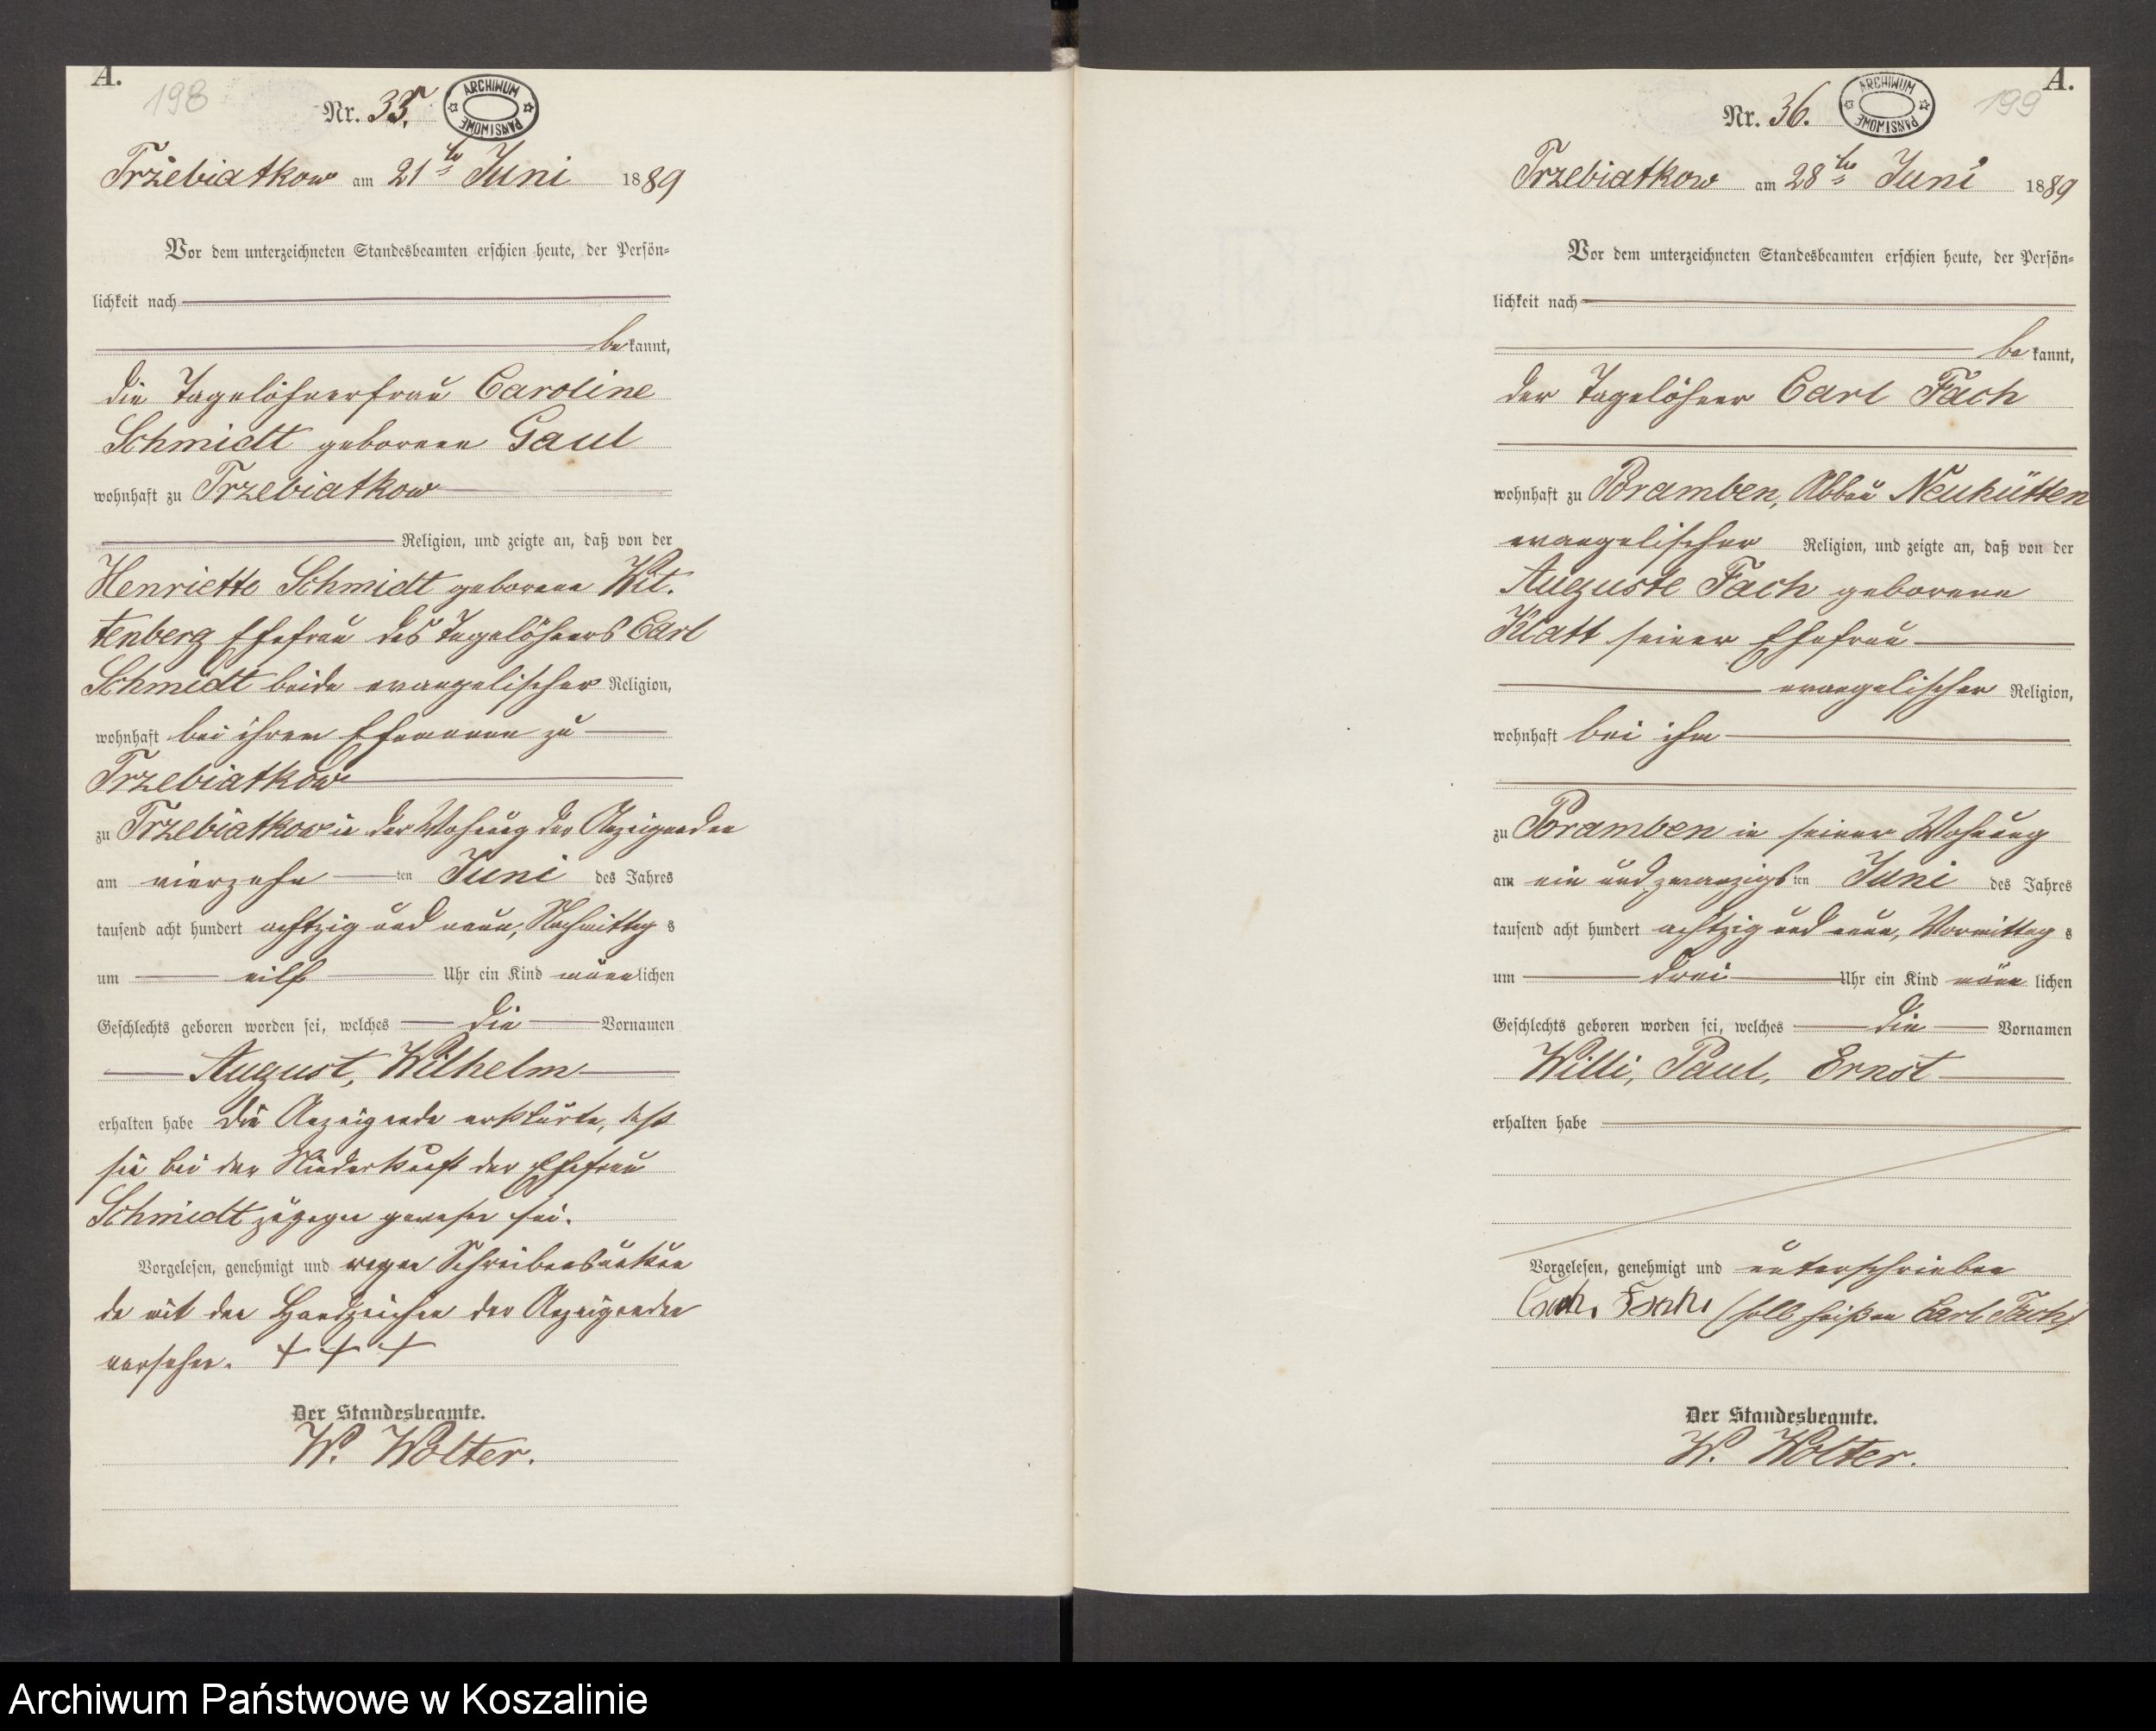 A.
198
Nr. 35.
ARCHIWUM PAŃSTWOWE
Trzebiatkow am 21ten Juni 1889
Vor dem unterzeichneten Standesbeamten erschien heute, der Persön-
lichkeit nach
bekannt,
die Tagelöhnerfrau Caroline
Schmidt geborene Gaul
wohnhaft zu Trzebiatkow
Religion, und zeigte an, daß von der
Henriette Schmidt geborene Wit.
tenberg Ehefrau des Tagelöhners Carl
Schmidt beide evangelischer Religion,
wohnhaft bei ihrem Ehemanne zu
Trzebiatkow
zu Trzebiatkow in der Wohnung der Anzeigenden
am vierzehn ten Juni des Jahres
tausend acht hundert achtzig und neun, Nachmittag s
um eilf Uhr ein Kind männlichen
Geschlechts geboren worden sei, welches die Vornamen
August, Wilhelm
erhalten habe Die Anzeigende erklärte, daß
sie bei der Niederkunft der Ehefrau
Schmidt zugegen gewesen sei.
Vorgelesen, genehmigt und wegen Schreibensunkun
de mit den Handzeichen der Anzeigenden
versehen. + + +
Der Standesbeamte.
W. Wolter.
A.
199
Nr. 36.
ARCHIWUM PAŃSTWOWE
Trzebiatkow am 28ten Juni 1889
Vor dem unterzeichneten Standesbeamten erschien heute, der Persön-
lichkeit nach
bekannt,
der Tagelöhner Carl Fach
wohnhaft zu Poramben, Abbau Neuhütten
evangelischer Religion, und zeigte an, daß von der
Auguste Fach geborene
Klatt seiner Ehefrau
evangelischer Religion,
wohnhaft bei ihm
zu Poramben in seiner Wohnung
am ein und zwanzigsten Juni des Jahres
tausend acht hundert achtzig und neun, Vormittag s
um drei Uhr ein Kind männ lichen
Geschlechts geboren worden sei, welches die Vornamen
Willi, Paul, Ernst
erhalten habe
Vorgelesen, genehmigt und unterschrieben
(soll heißen Carl Fach)
Der Standesbeamte.
W. Wolter.
Archiwum Państwowe w Koszalinie